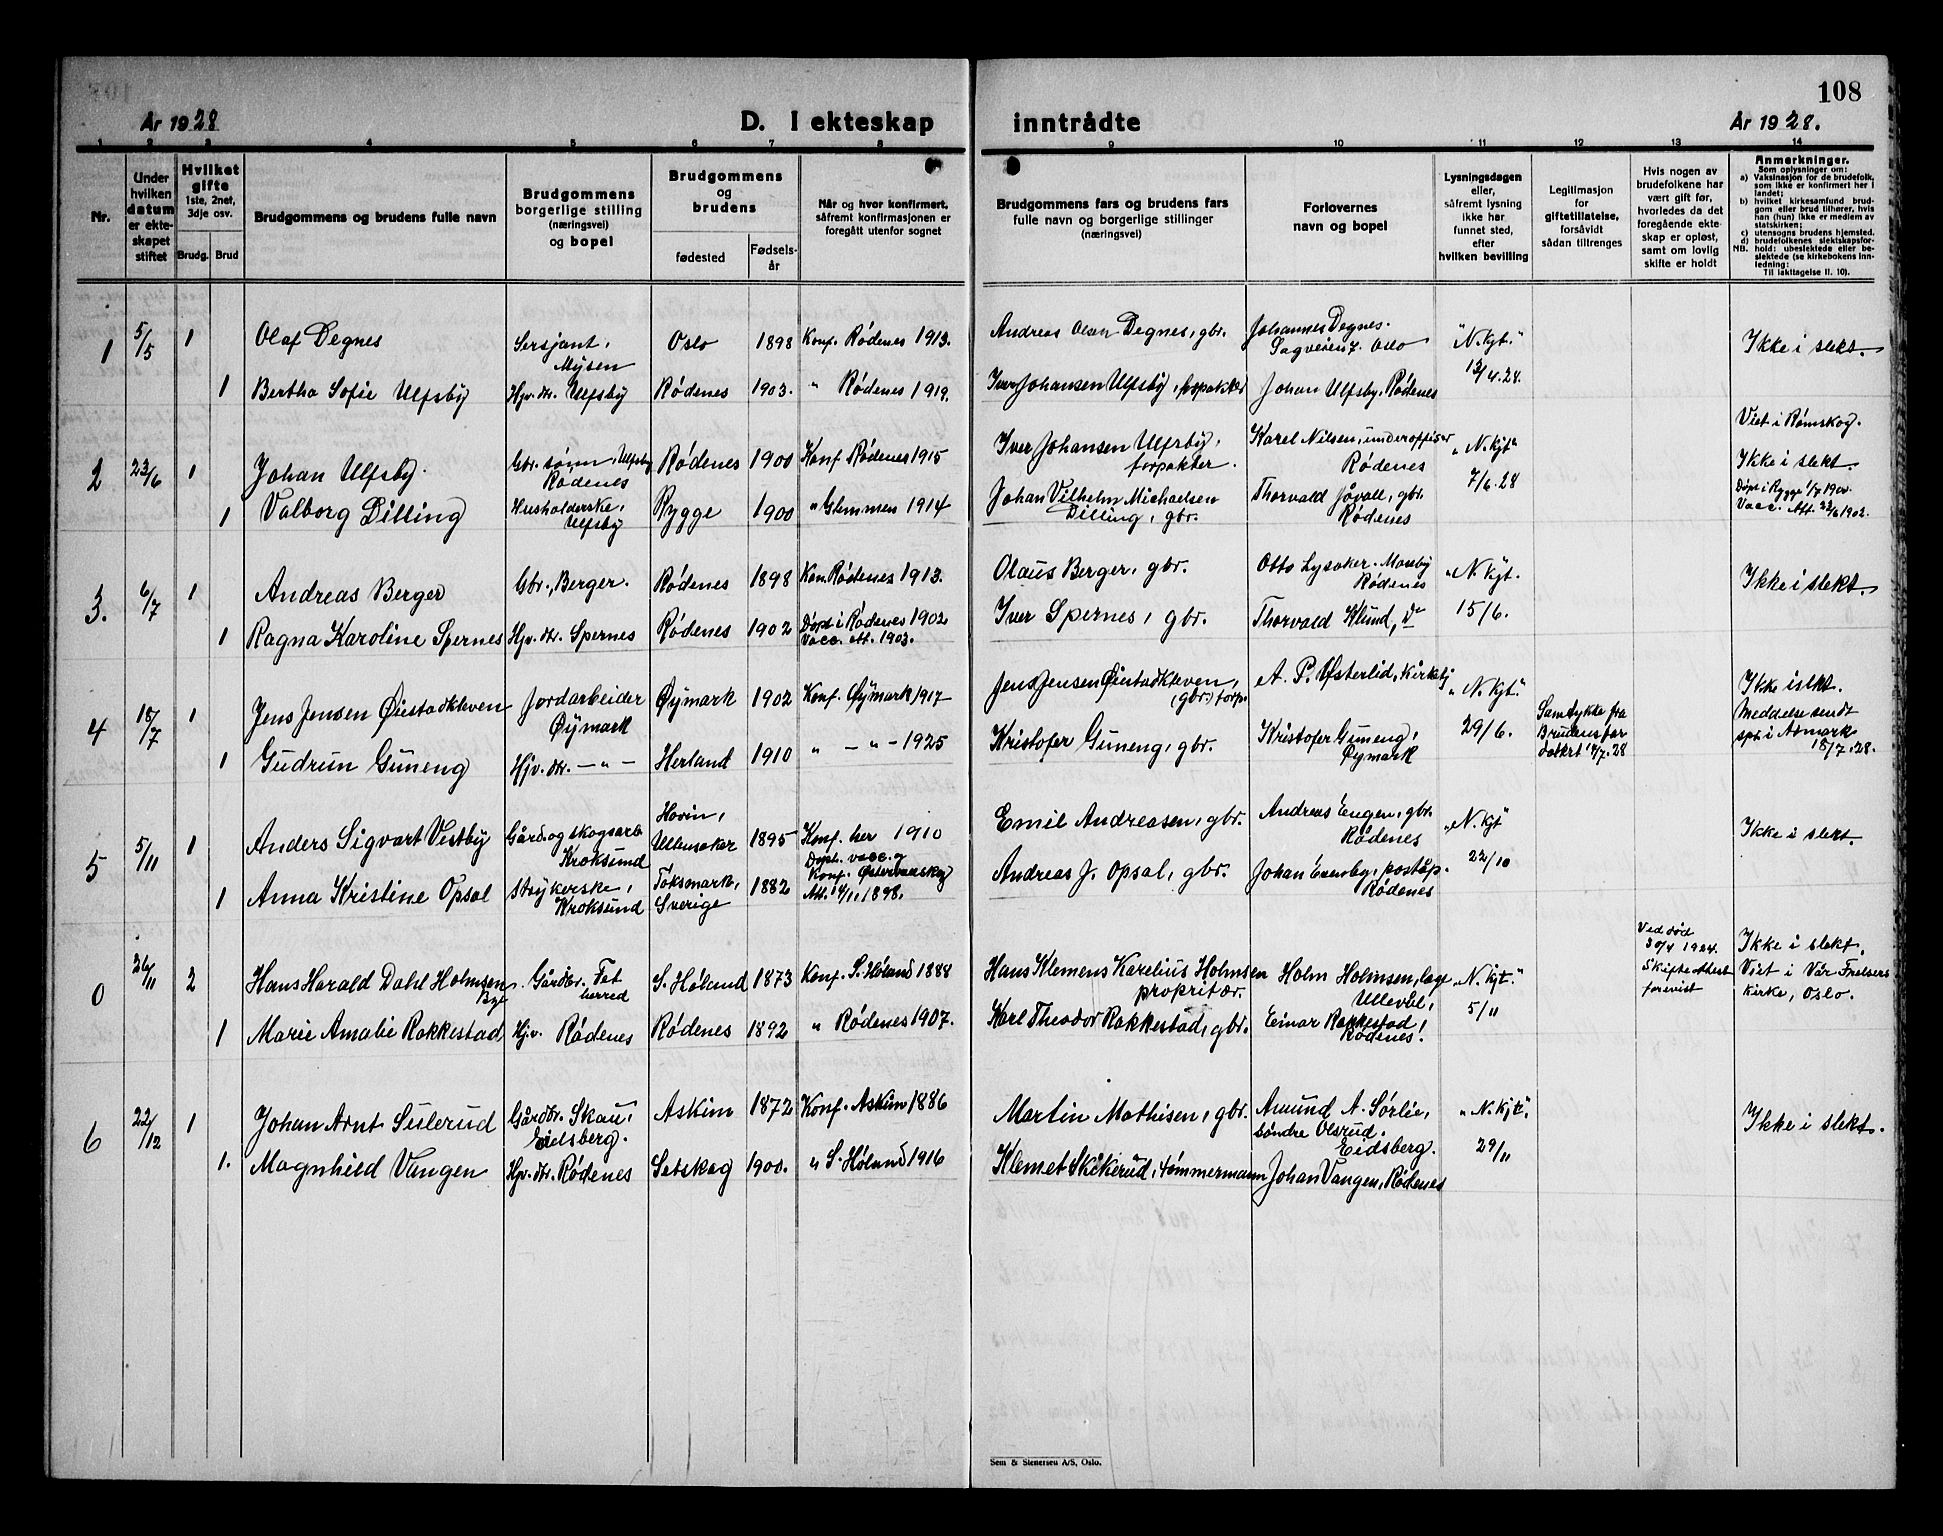 108
År 1928
D. I ekteskap inntrådte
År 1928.
1 2 3 4 5 6 7 8 9 10 11 12 13 14
Nr.
Under hvilken datum er ekte-skapet stiftet
Hvilket gifte 1ste, 2net, 3dje osv.
Brudg. Brud
Brudgommens og brudens fulle navn
Brudgommens borgerlige stilling (næringsvei) og bopel
Brudgommens og brudens
fødested
Fødsels-år
Når og hvor konfirmert, såfremt konfirmasjonen er foregått utenfor sognet
Brudgommens fars og brudens fars fulle navn og borgerlige stillinger (næringsvei)
Forlovernes navn og bopel
Lysningsdagen eller, såfremt lysning ikke har funnet sted, efter hvilken bevilling
Legitimasjon for giftetillatelse, forsåvidt sådan tiltrenges
Hvis nogen av brudefolkene har vært gift før, hvorledes da det foregående ekte-skap er opløst, samt om lovlig skifte er holdt
Anmerkninger.
Som oplysninger om:
a) Vaksinasjon for de brudefolk, som ikke er konfirmert her i landet;
b) hvilket kirkesamfund brud-gom eller brud tilhører, hvis han (hun) ikke er medlem av statskirken;
c) utensogns brudens hjemsted.
d) brudefolkenes slektskapsfor-hold: ubeslektede eller be-slektede (se kirkebokens inn-ledning:
NB.
Til iakttagelse II. 10).
1 5/5 1 Olaf Degnes Sersjant, Mysen Oslo 1898 Konf. Rødenes 1913. Andreas Olsen Degnes, gbr. Johannes Degnes. Sagveien 7. Oslo "N. Kgt." 13/4.28. Ikke i slekt.
1 Bertha Sofie Ulfsby Hjv. dtr. Ulfsby Rødenes 1903. " Rødenes 1919. Iver Johansen Ulfsby, forpakter Johan Ulfsby, Rødenes
2 23/6 1 Johan Ulfsby. Gbr. sønn, Ulfsby Rødenes Rødenes 1900 Konf. Rødenes 1915 Iver Johansen Ulfsby, forpakter. Karel Nilsen, underoffiser Rødenes "N. Kgt" 7/6.28 Viet i Rømskog. Ikke i slekt.
1 Valborg Dilling Husholderske, Ulfsby Rygge 1900 " Glemmen 1914 Johan Vilhelm Michaelsen Dilling, gbr. Thorvald Jåvall, gbr. Rødenes Døpt i Rygge 1/7 1900. Vacc. Att. 22/6 1902.
3. 6/7 1 Andreas Berger Gbr., Berger. Rødenes 1898 Kon. Rødenes 1913. Olaus Berger, gbr. Otto Lysaker. Mosby Rødenes "N. Kgt. 15/6. Ikke i slekt.
1 Ragna Karoline Spernes Hjv. dtr. Spernes Rødenes 1902 Døpt i Rødenes 1902 Vacc. att. 1903. Iver Spernes, gbr. Thorvald Klund, Do
4 15/7 1 Jens Jensen Øiestadkleven Jordarbeider Øymark Øymark 1902 Konf. Øymark 1917 Jens Jensen Øiestadkleven, (gbr.) forp. A. P. Østerlid, Kirketj "N. Kgt." 29/6. Samtykke fra Brudens far datert 14/7.28 Ikke i slekt. Meddelse sendt spr. i Aremark 15/7.28.
1 Gudrun Guneng Hjv. dtr. — " — Herland 1910 " — " — 1925 Kristofer Guneng, gbr. Kristofer Guneng, Øymark
5 5/11 1 Anders Sigvart Vestby Gårds og skogsarb Kroksund Hovin, Ullensaker 1895 Konf. her 1910 Emil Andreasen, gbr. Andreas Engen, gbr. Rødenes "N. Kgt" 22/10 Ikke i slekt.
1 Anna Kristine Opsal Strykerske, Kroksund Foksmark, Sverige 1882 Døpt. vacc. og Konf. Østervaalskog Att. 14/11 1898. Andreas J. Opsal, gbr. Johan Evensby, poståp. Rødenes
0 26/11 2 Hans Harald Dahl Holmsen Gårdbr. Fet herred S. Høland 1873 Konf. S. Høland 1888 Hans Klemens Karelius Holmsen propritær. Holm Holmsen, læge Ullevål, "N. Kjt." 5/11 Ved død 30/4 1924. Skifteattest forevist Ikke i slekt, Viet i Vår Frelsers Kirke, Oslo.
1 Marie Amalie Rakkestad Hjv. Rødenes Rødenes 1892 " Rødenes 1907. Karl Theodor Rakkestad, gbr. Einar Rakkestad, Rødenes.
6 22/12 1 Johan Arnt Sulerud Gårdbr. Skau, Eidsberg. Askim 1872 Konf. Askim 1886 Martin Mathisen, gbr. Amund A. Sørlie, søndre Olsrud. Eidsberg. "N. Kjt". 29/11 Ikke i slekt.
1. Magnhild Vangen Hjv. dtr. Rødenes Setskog 1900. " S. Høland 1916 Klemet Skikerud, tømmermann Johan Vangen, Rødenes
Sem & Stenersen A/S, Oslo.